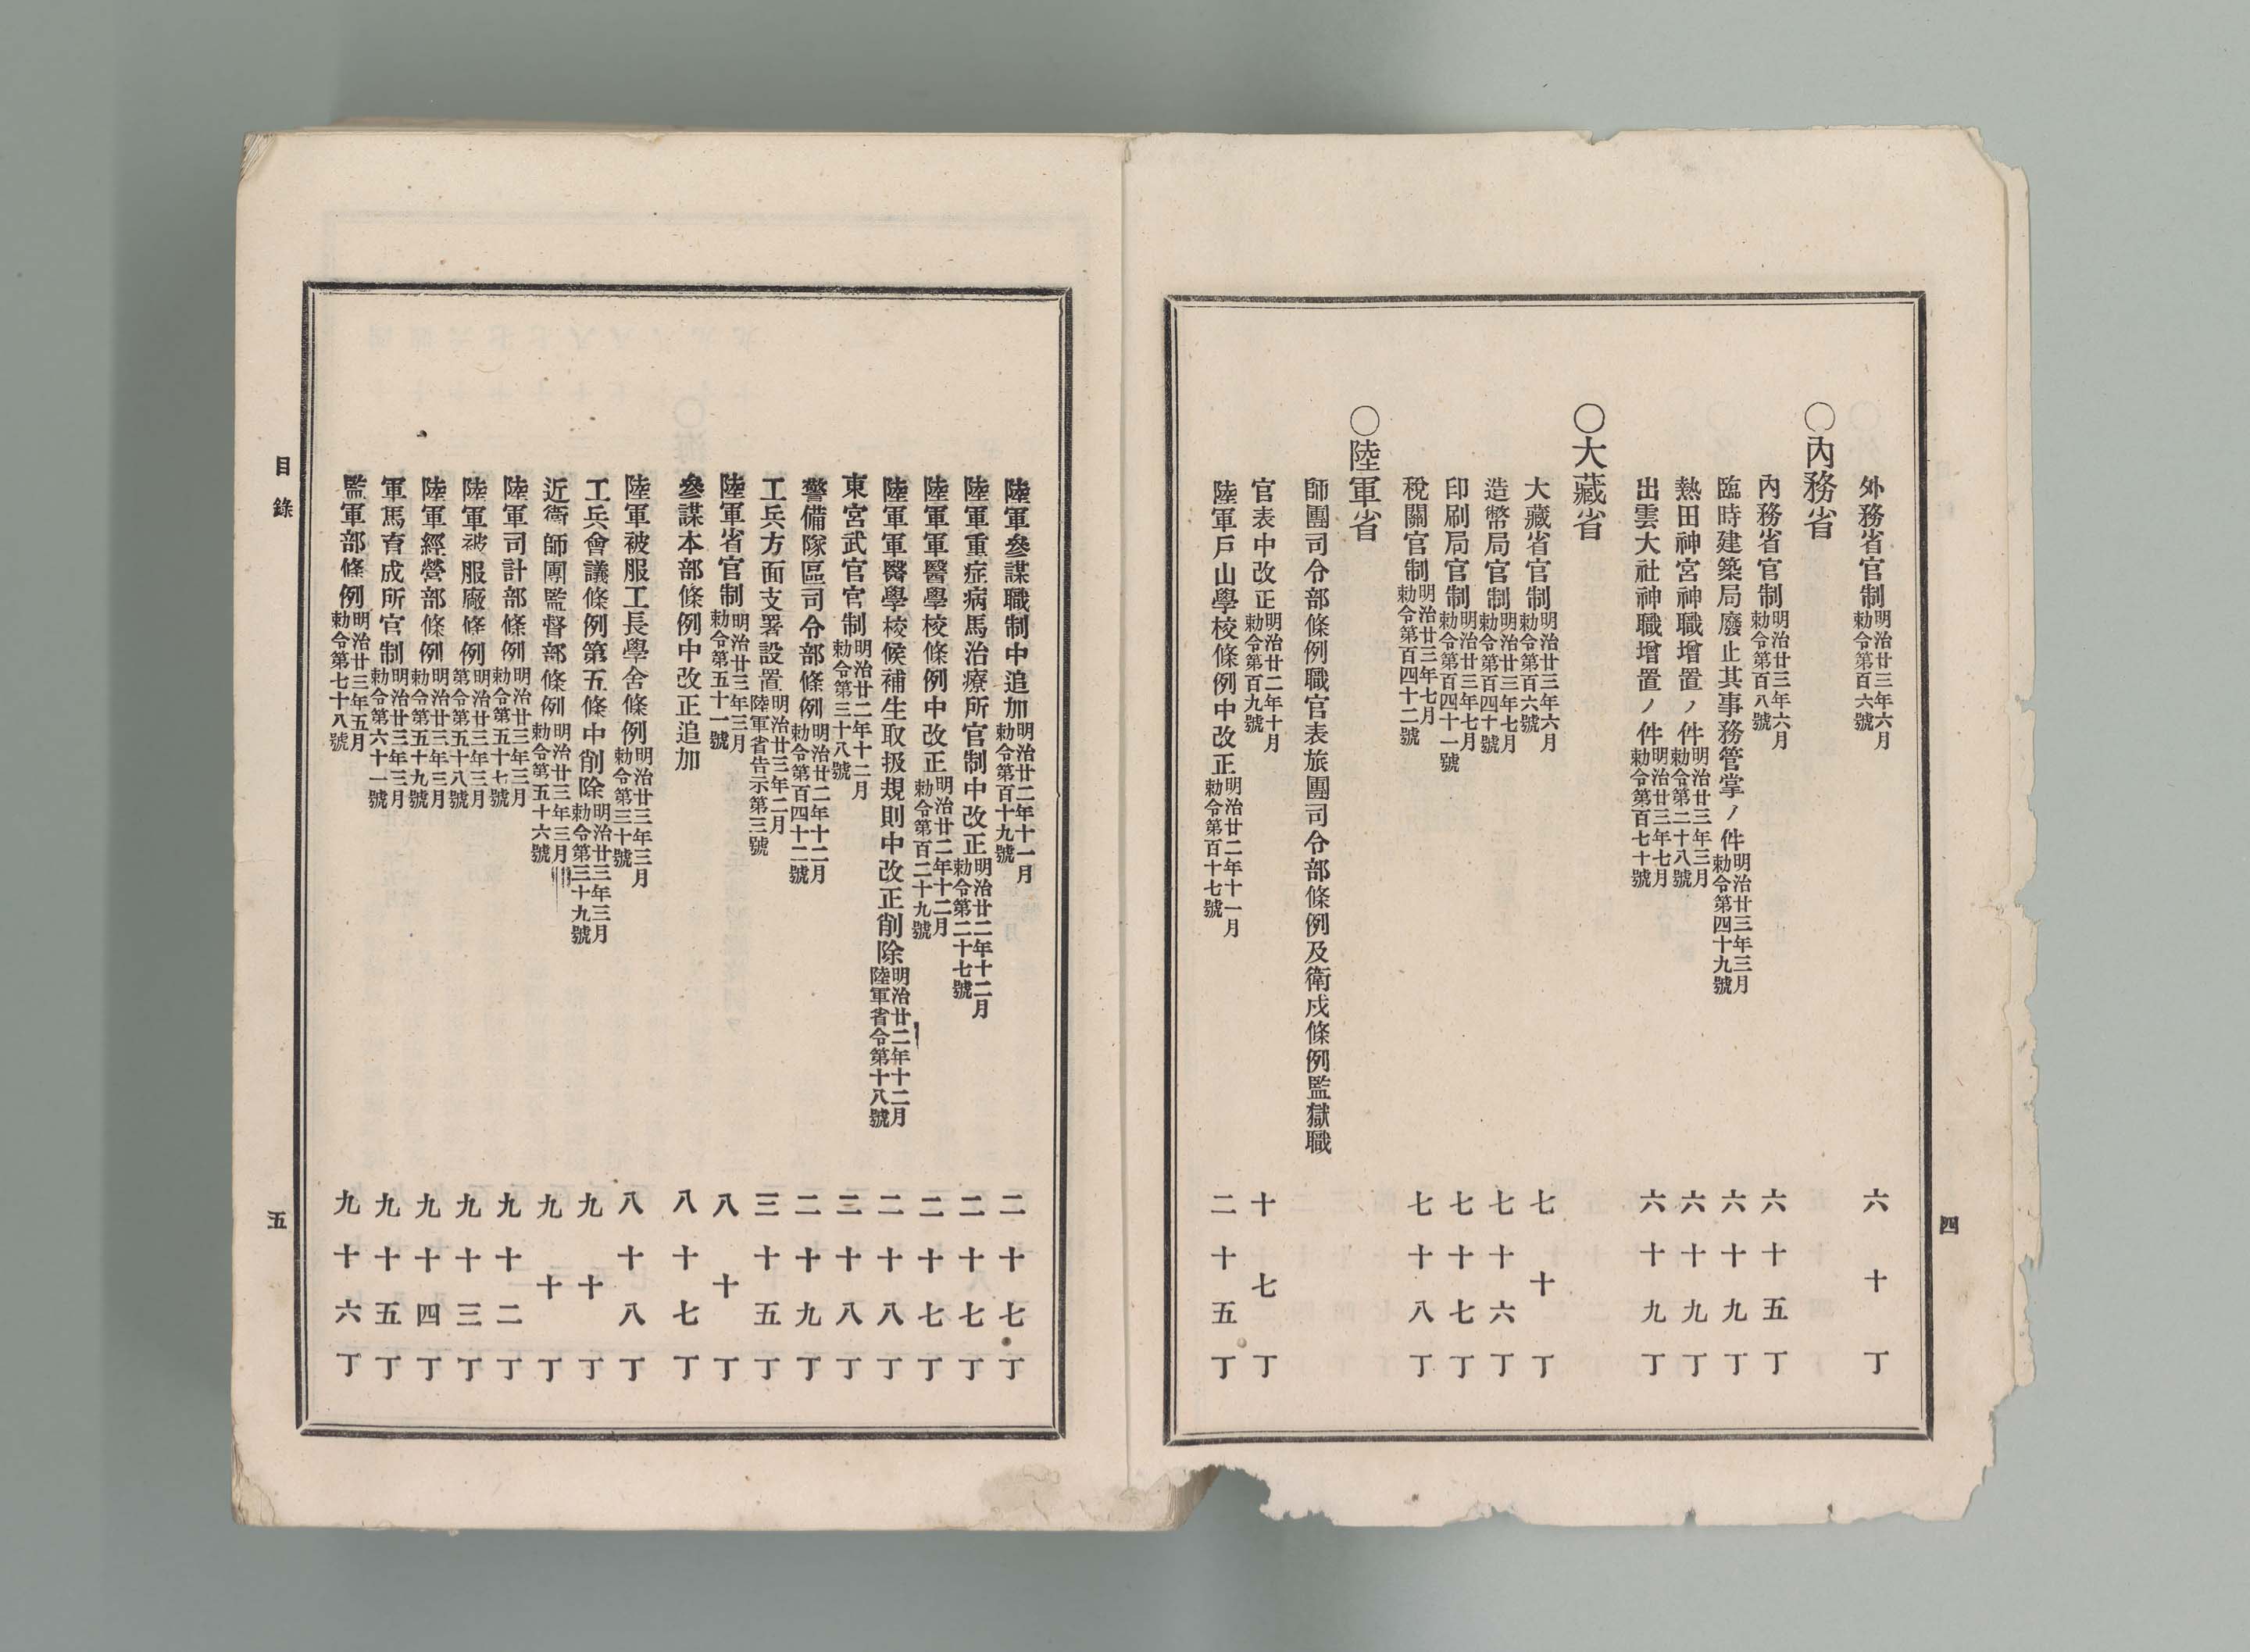 四
外務省官制明治廿三年六月勅令第百六號 六十丁
〇內務省
內務省官制明治廿三年六月勅令第百八號 六十五丁
臨時建築局廢止其事務管掌ノ件明治廿三年三月勅令第四十九號 六十九丁
熱田神宮神職增置ノ件明治廿三年三月勅令第二十八號 六十九丁
出雲大社神職增置ノ件明治廿三年七月勅令第百七十號 六十九丁
〇大藏省
大藏省官制明治廿三年六月勅令第百六號 七十丁
造幣局官制明治廿三年七月勅令第百四十號 七十六丁
印刷局官制明治廿三年七月勅令第百四十一號 七十七丁
稅關官制明治廿三年七月勅令第百四十二號 七十八丁
〇陸軍省
師團司令部條例職官表旅團司令部條例及衛戍條例監獄職
官表中改正明治廿二年十月勅令第百九號 十七丁
陸軍戶山學校條例中改正明治廿二年十一月勅令第百十七號 二十五丁
陸軍參謀職制中追加明治廿二年十一月勅令第百十九號 二十七丁
陸軍重症病馬治療所官制中改正明治廿二年十二月勅令第二十七號 二十七丁
陸軍軍醫學校條例中改正明治廿二年十二月勅令第百二十九號 二十七丁
陸軍軍醫學校候補生取扱規則中改正削除明治廿二年十二月陸軍省令第十八號 二十八丁
東宮武官官制明治廿二年十二月勅令第三十八號 三十八丁
警備隊區司令部條例明治廿二年十二月勅令第百四十二號 二十九丁
工兵方面支署設置明治廿三年二月陸軍省告示第三號 三十五丁
陸軍省官制明治廿三年三月勅令第五十一號 八十丁
參謀本部條例中改正追加 八十七丁
陸軍被服工長學舍條例明治廿三年三月勅令第三十號 八十八丁
工兵會議條例第五條中削除明治廿三年三月勅令第三十九號 九十丁
近衛師團監督部條例明治廿三年三月勅令第五十六號 九十丁
陸軍司計部條例明治廿三年三月勅令第五十七號 九十二丁
陸軍被服廠條例明治廿三年三月勅令第五十八號 九十三丁
陸軍經營部條例明治廿三年三月勅令第五十九號 九十四丁
軍馬育成所官制明治廿三年三月勅令第六十一號 九十五丁
監軍部條例明治廿三年五月勅令第七十八號 九十六丁
目錄
五